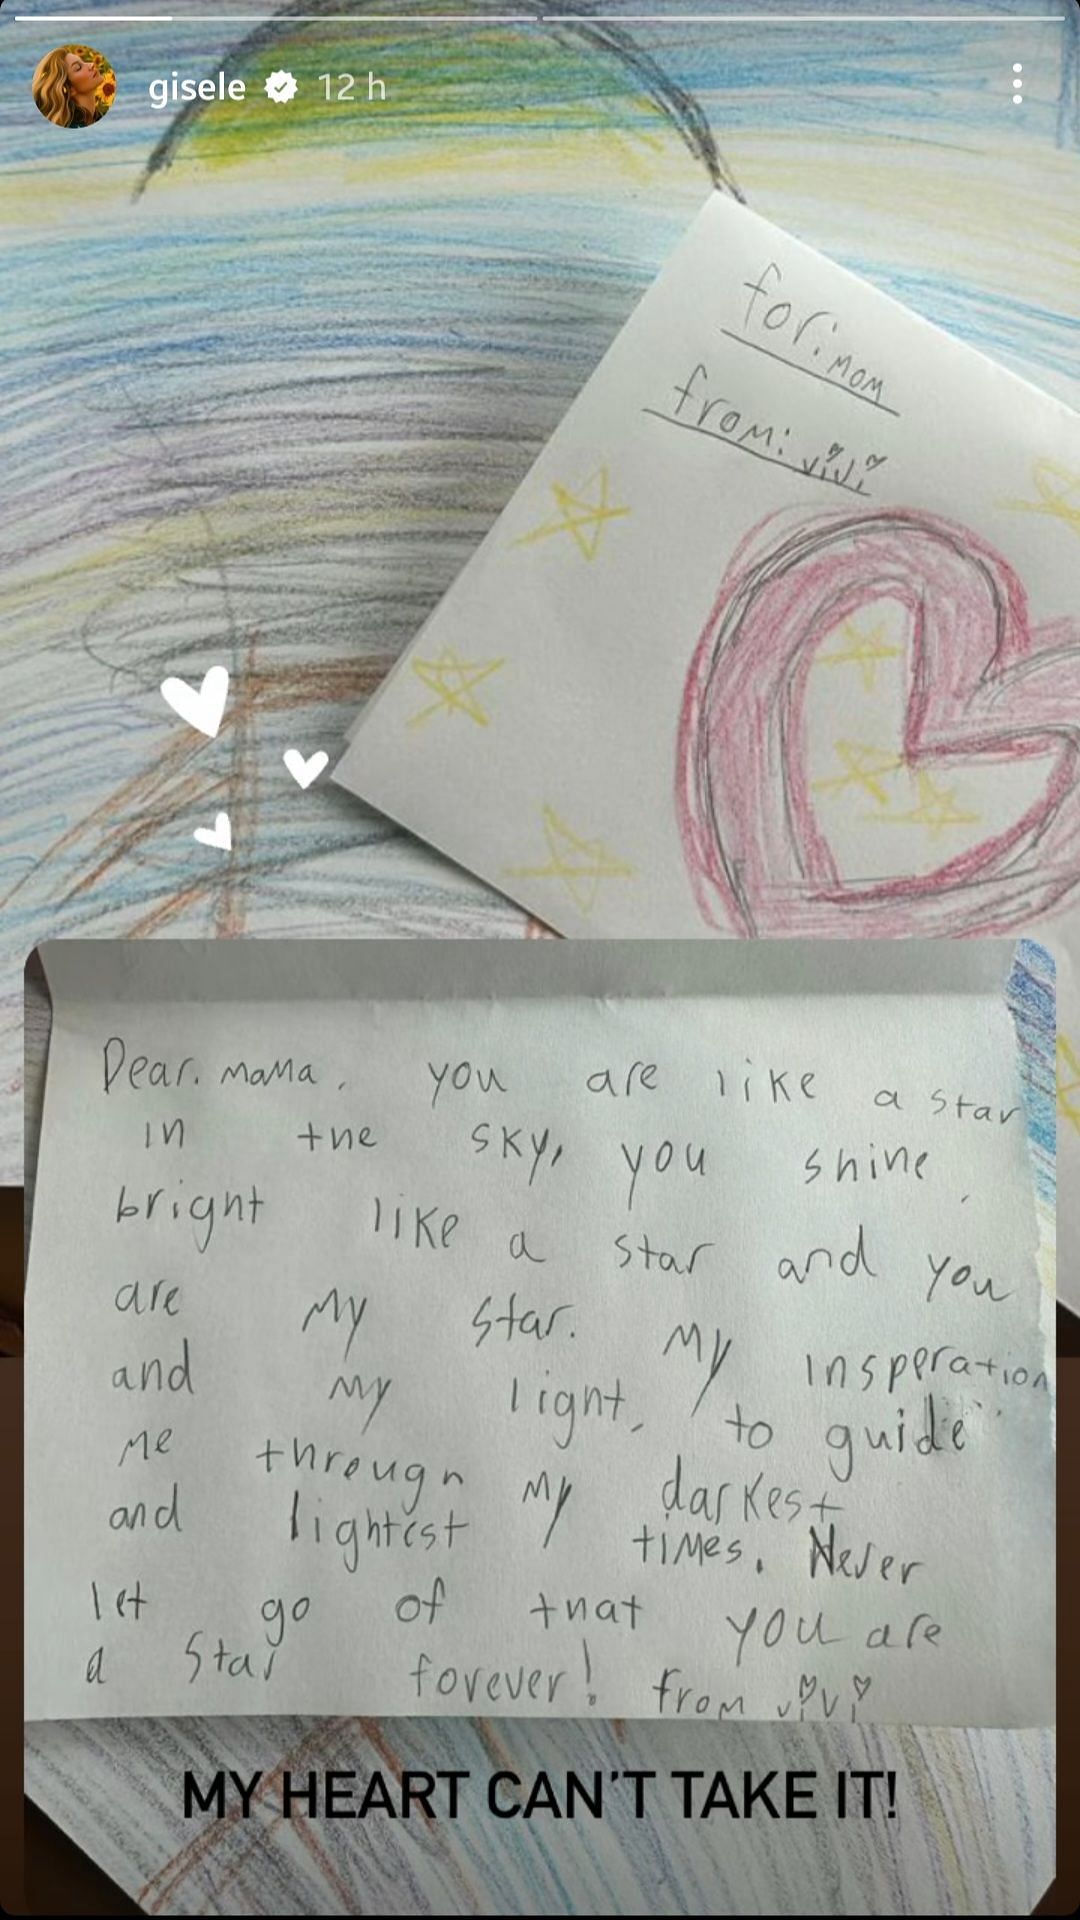 gisele 12 h
for: mom
from: vivi
Dear. mama, you are like a star
in the sky, you shine,
bright like a star and you
are my star. my insperation
and my light, to guide
me through my darkest
and lightest times. Never
let go of that you are
a star forever! from vivi
MY HEART CAN'T TAKE IT!